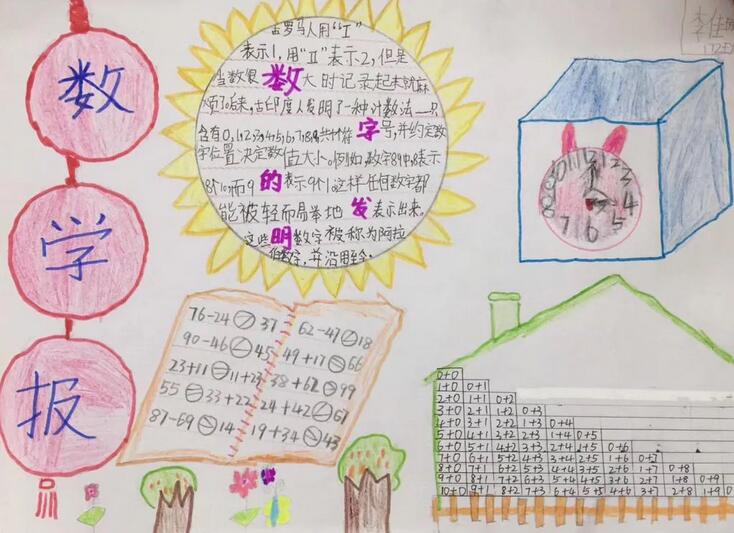 数
学
报
古罗马人用“I”
表示1,用“II”表示2,但是
当数很大时记录起来就麻
烦了。后来,古印度人发明了一种计数法——只
含有0,1,2,3,4,5,6,7,8,9共十个符号,并约定数
字位置决定数值大小。例如,数字89中8表示
8个10,而9表示9个1。这样任何数字都
能被轻而易举地表示出来。
这些数字被称为阿拉
伯数字,并沿用至今。
数
字
的
发
明
10 11 12 1 2 3 4 5 6 7 8
76-24 37
90-46 45
23+11 11+23
55 33+22
87-69 14
62-47 18
49+17 66
38+62 99
24+42 67
19+34 43
0+0
1+0 0+1
2+0 1+1 0+2
3+0 2+1 1+2 0+3
4+0 3+1 2+2 1+3 0+4
5+0 4+1 3+2 2+3 1+4 0+5
6+0 5+1 4+2 3+3 2+4 1+5 0+6
7+0 6+1 5+2 4+3 3+4 2+5 1+6 0+7
8+0 7+1 6+2 5+3 4+4 3+5 2+6 1+7 0+8
9+0 8+1 7+2 6+3 5+4 4+5 3+6 2+7 1+8 0+9
10+0 9+1 8+2 7+3 6+4 5+5 4+6 3+7 2+8 1+9